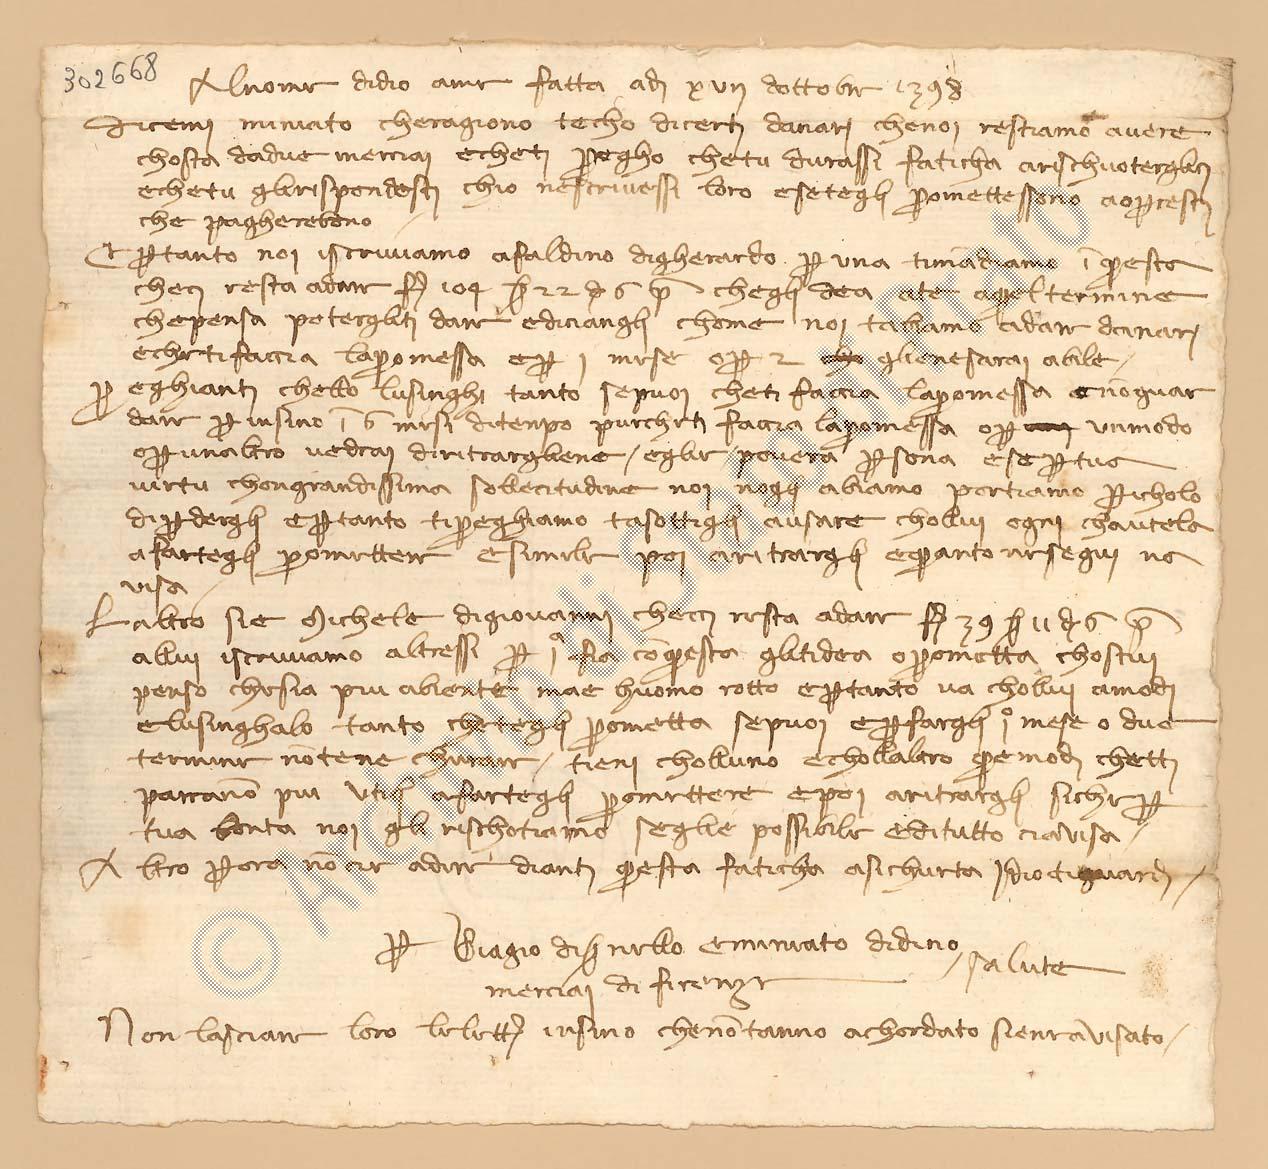 302668
Al nome di dio ame fatta adj xvij dottobre 1398
dicemj miniato cheragiono techo dicertj danarj chenoj restiamo avere
chosta dadue merciaj echetj progho chetu durassi faticha arischuoterglitj
echetu glirispondestj chio nescrivessi loro esetegli promettessono aprestj
che pagherebono
Et pertanto noi iscriviamo afaldino digherardo per una timandiamo in questa
checj resta adare f 104 s 22 d 6 p chegli dea ate aqueltermine
chepensa poterglitj dare ediciangli chome noi tabiamo adare danarj
echetifaccia lapromessa eper j mese oper 2 glienesaraj abile
Preghiantj chello lusinghj tanto sepuoj chetj faccia lapromessa enoguar
dare per insino in 6 mesi ditenpo purchetj faccia lapromessa oper unmodo
operunaltro vedraj diritrargliene / eglie povera persona ese pertua
virtu chongrandissima sollecitudine noi nogli abiamo portiamo pericholo
diperdergli epertanto tipreghiamo tasottigli ausare chollui ogni chautela
afartegli promettere esimile poi aritrargli equanto nesegui na
visa
Laltro sie Michele digiovannj checj resta adare f 39 s 11 d 6 p
allui iscriviamo altressi per jº fia conquesta glitidea oprometta chostui
penso chesia piu abiente mae huomo rotto epertanto va chollui amodj
elusinghalo tanto chetegli prometta sepuoj eperfargli jº mese o due
termine nontene churare / tienj cholluno echollaltro quemodj chettj
parranno piu utili afartegli promettere epoi aritrargli siche per
tua bonta noi gli rischotiamo seglie possibile editutto ciavisa /
Altro perora none adire diantj questa faticha asichurta Idio tiguardj /
per Biagio diser nello eminiato didino / salute
merciaj di firenze
Non lasciare loro leletterj insino chenontanno achordato sieneavisato /